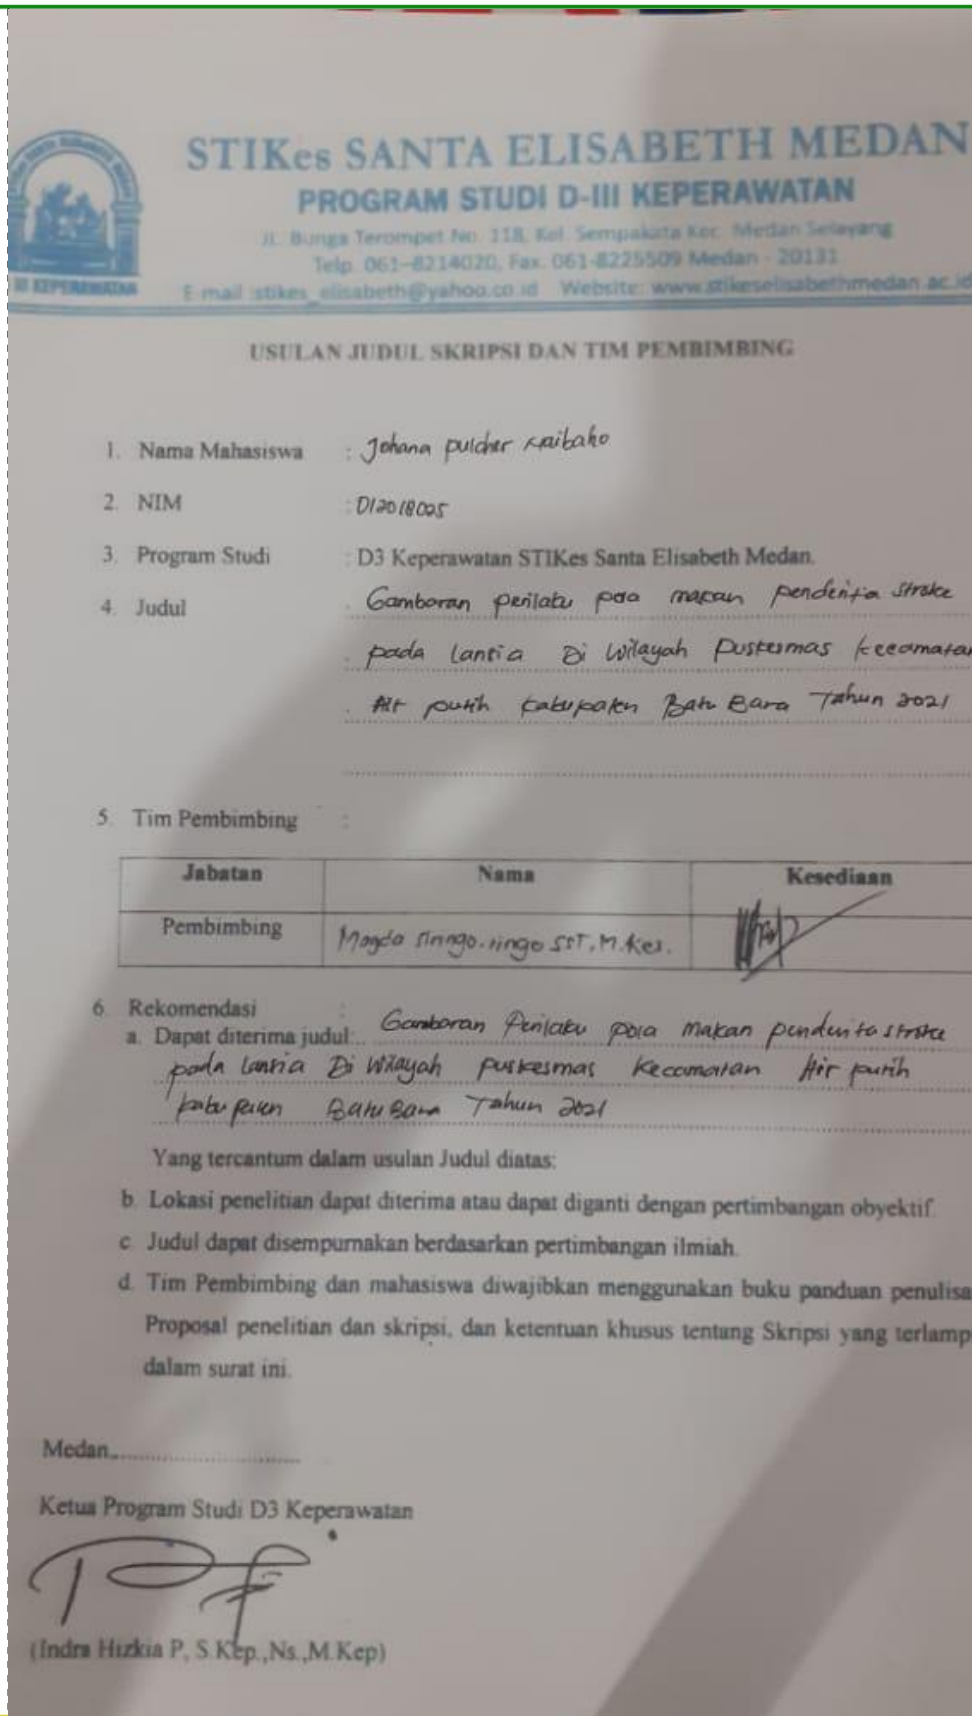 STIKes SANTA ELISABETH MEDAN
PROGRAM STUDI D-III KEPERAWATAN
JL. Bunga Terompet No. 118, Kel. Sempakata Kec. Medan Selayang
Telp. 061-8214020, Fax. 061-8225509 Medan - 20131
E-mail :stikes_elisabeth@yahoo.co.id Website: www.stikeselisabethmedan.ac.id
III KEPERAWATAN
USULAN JUDUL SKRIPSI DAN TIM PEMBIMBING
1. Nama Mahasiswa : Johana pulcher
2. NIM : 012018025
3. Program Studi : D3 Keperawatan STIKes Santa Elisabeth Medan.
4. Judul : Gambaran perilaku pola makan penderita stroke
pada Lansia Di Wilayah Puskesmas Kecamatan
Air putih Kabupaten Batu Bara Tahun 2021
5. Tim Pembimbing :
Jabatan Nama Kesediaan
Pembimbing Magda siringo-ringo SST, M.Kes.
6 Rekomendasi :
a. Dapat diterima judul: Gambaran Perilaku pola makan penderita stroke
pada Lansia Di Wilayah puskesmas Kecamatan Air putih
kabupaten Batu Bara Tahun 2021
Yang tercantum dalam usulan Judul diatas:
b. Lokasi penelitian dapat diterima atau dapat diganti dengan pertimbangan obyektif.
c. Judul dapat disempurnakan berdasarkan pertimbangan ilmiah.
d. Tim Pembimbing dan mahasiswa diwajibkan menggunakan buku panduan penulisa
Proposal penelitian dan skripsi, dan ketentuan khusus tentang Skripsi yang terlamp
dalam surat ini.
Medan,..............................
Ketua Program Studi D3 Keperawatan
(Indra Hizkia P, S.Kep.,Ns.,M.Kep)